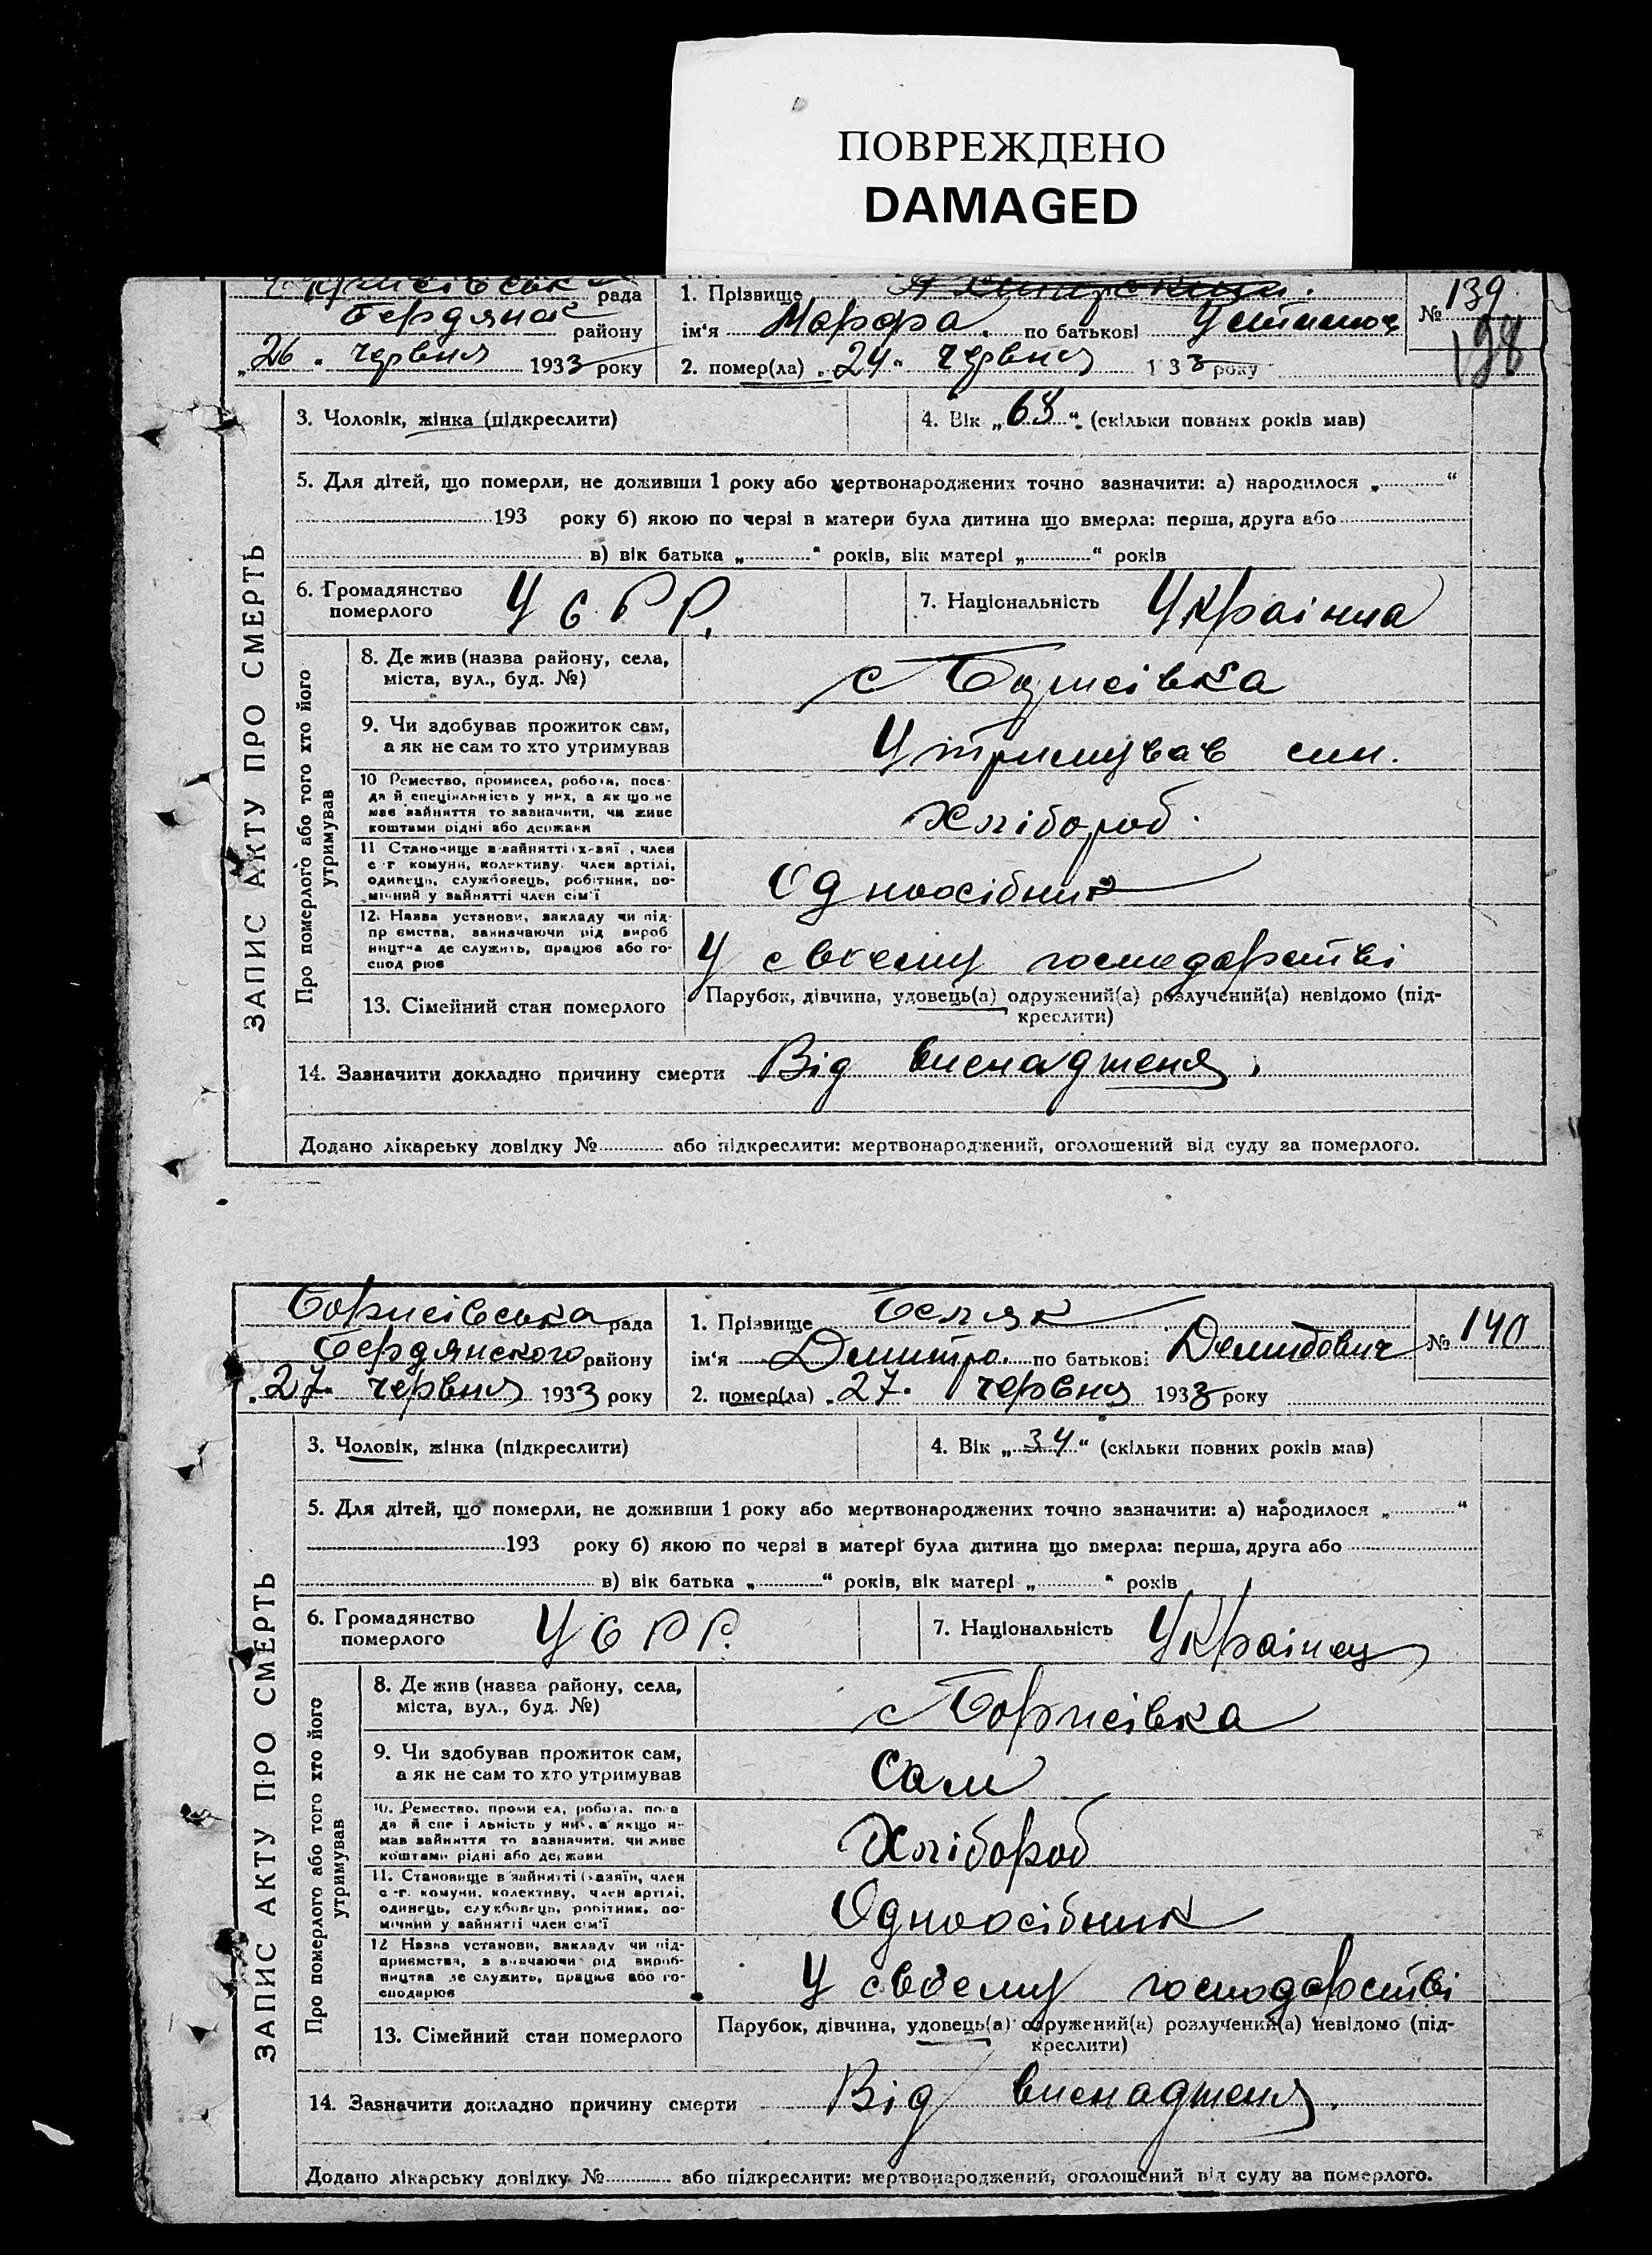 ПОВРЕЖДЕНО
DAMAGED
рада 1. Прізвище № 139
Бердянськ району ім'я Марфа по батькові 138
„26" червня 1933 року 2. помер(ла) „24" червня 1 33 року
ЗАПИС АКТУ ПРО СМЕРТЬ
3. Чоловік, жінка (підкреслити) 4. Вік „ " (скільки повних років мав)
5. Для дітей, що померли, не доживши 1 року або мертвонароджених точно зазначити: а) народилося „ "
193 року б) якою по черзі в матери була дитина що вмерла: перша, друга або
в) вік батька „ " років, вік матері „ " років
6. Громадянство УСРР. 7. Національність Українка
померлого
Про померлого або того хто його
утримував
8. Де жив (назва району, села, с Борисівка
міста, вул., буд. №)
9. Чи здобував прожиток сам, Утримував син.
а як не сам то хто утримував
10 Ремество, промисел, робота, поса-
да й спеціяльність у них, а як що не
має зайняття то зазначити, чи живе Хлібороб.
коштами рідні або держави
11 Становище в зайнятті (х-зяї , член
с-г комуни, колективу, член артілі,
одинець, службовець, робітник, по- Одноосібник
мічний у зайнятті член сім'ї
12. Назва установи, закладу чи під-
пр ємства, зазначаючи рід вироб
ництва де служить, працює або го- У своєму господарстві
спод рює
13. Сімейний стан померлого Парубок, дівчина, удовець(а) одружений(а) розлучений(а) невідомо (під-
креслити)
14. Зазначити докладно причину смерти Від виснадженя.
Додано лікарську довідку № або підкреслити: мертвонароджений, оголошений від суду за померлого.
Борисівська рада 1. Прізвище Беляк № 140
Бердянского району ім'я Дмитро по батькові Демидович
„27" червня 1933 року 2. помер(ла) „27" червня 1933 року
ЗАПИС АКТУ ПРО СМЕРТЬ
3. Чоловік, жінка (підкреслити) 4. Вік „34" (скільки повних років мав)
5. Для дітей, що померли, не доживши 1 року або мертвонароджених точно зазначити: а) народилося „ "
193 року б) якою по черзі в матері була дитина що вмерла: перша, друга або
в) вік батька „ " років, вік матері „ " років
6. Громадянство УСРР. 7. Національність Українец
померлого
Про померлого або того хто його
утримував
8. Де жив (назва району, села, с Борисівка
міста, вул., буд. №)
9. Чи здобував прожиток сам, Сам
а як не сам то хто утримував
10. Ремество, проми ел, робота, поса
да й спе і льність у них, а якщо н-
мав зайняття то зазначити, чи живе Хлібороб
коштами рідні або держави
11. Становище в зайнятті (хазяїн, член
с-г. комуни, колективу, член артілі,
одинець, службовець, робітник, по- Одноосібник
мічний у зайнятті член сім'ї
12 Назва установи, закладу чи під-
приємства, з значаючи рід вироб-
ництва де служить, працює або го- У своєму господарстві
сподарює
13. Сімейний стан померлого Парубок, дівчина, удовець(а) одружений(а) розлучений(а) невідомо (під-
креслити)
14. Зазначити докладно причину смерти Від виснадженя.
Додано лікарську довідку № або підкреслити: мертвонароджений, оголошений від суду за померлого.